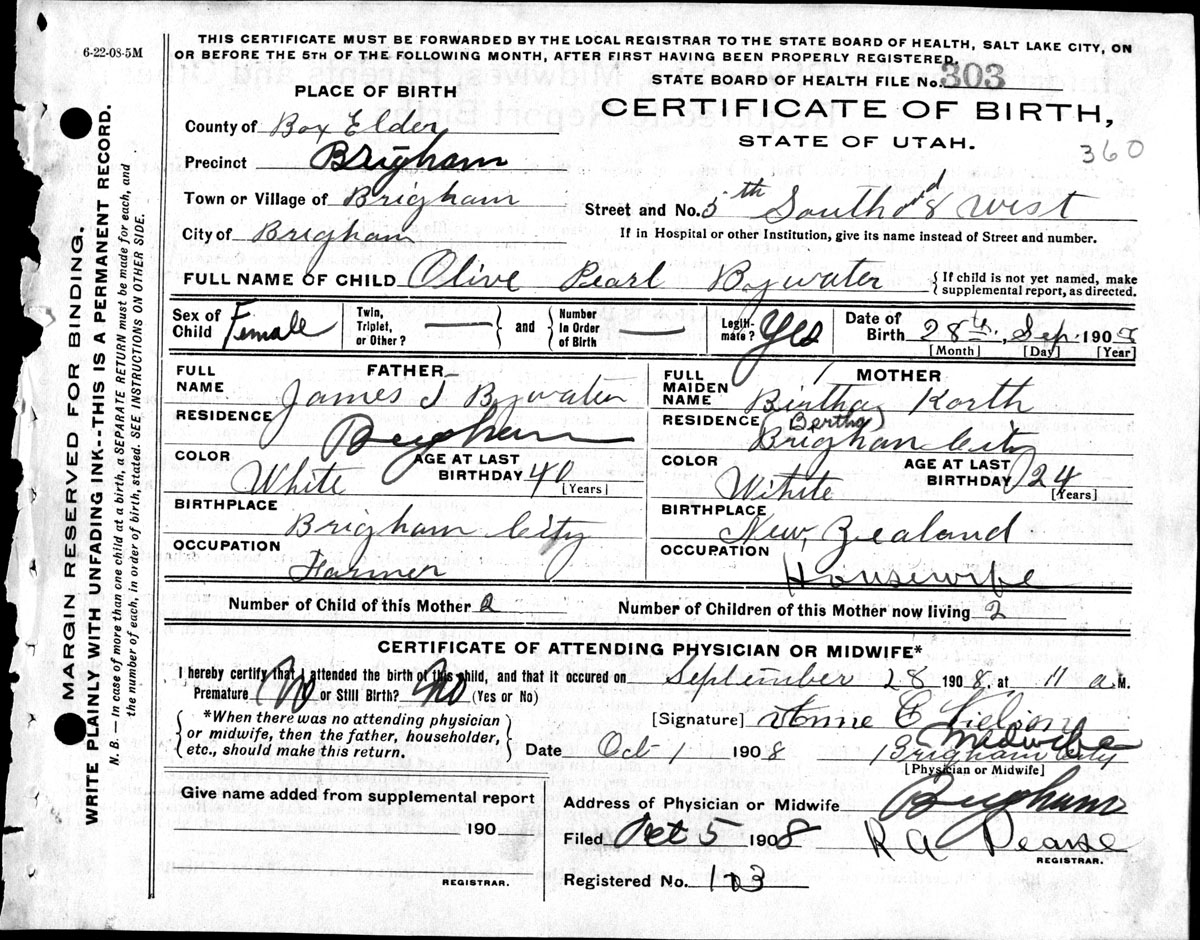 6-22-08-5M
THIS CERTIFICATE MUST BE FORWARDED BY THE LOCAL REGISTRAR TO THE STATE BOARD OF HEALTH, SALT LAKE CITY, ON
OR BEFORE THE 5TH OF THE FOLLOWING MONTH, AFTER FIRST HAVING BEEN PROPERLY REGISTERED.
STATE BOARD OF HEALTH FILE No. 303
PLACE OF BIRTH
CERTIFICATE OF BIRTH,
STATE OF UTAH.
360
County of Box Elder
Precinct Brigham
Town or Village of Brigham
Street and No. 5th South & West
City of Brigham
If in Hospital or other Institution, give its name instead of Street and number.
FULL NAME OF CHILD Olive Pearl Bywater
{If child is not yet named, make
supplemental report, as directed.
Sex of Child Female
Twin, Triplet, or Other? — } and { Number In Order of Birth —
Legitimate? Yes
Date of Birth 28th, Sep. 1908
[Month] [Day] [Year]
FATHER
FULL NAME James T Bywater
RESIDENCE Brigham
COLOR White
AGE AT LAST BIRTHDAY 40 [Years]
BIRTHPLACE Brigham City
OCCUPATION Farmer
MOTHER
FULL MAIDEN NAME Birtha Korth
(Bertha)
RESIDENCE Brigham City
COLOR Wihite
AGE AT LAST BIRTHDAY 24 [Years]
BIRTHPLACE New Zealand
OCCUPATION Housewife
Number of Child of this Mother 2
Number of Children of this Mother now living 2
CERTIFICATE OF ATTENDING PHYSICIAN OR MIDWIFE*
I hereby certify that I attended the birth of this child, and that it occured on September 28 1908, at 11 a.M.
Premature No or Still Birth? No (Yes or No)
*When there was no attending physician
or midwife, then the father, householder,
etc., should make this return.
[Signature] Anne C
Midwife
Date Oct 1 1908 Brigham City
[Physician or Midwife]
Give name added from supplemental report
190
REGISTRAR.
Address of Physician or Midwife Brigham
Filed Oct 5 1908 R A Pearse
REGISTRAR.
Registered No. 103
MARGIN RESERVED FOR BINDING.
WRITE PLAINLY WITH UNFADING INK--THIS IS A PERMANENT RECORD.
N. B. — In case of more than one child at a birth, a SEPARATE RETURN must be made for each, and
the number of each, in order of birth, stated. SEE INSTRUCTIONS ON OTHER SIDE.